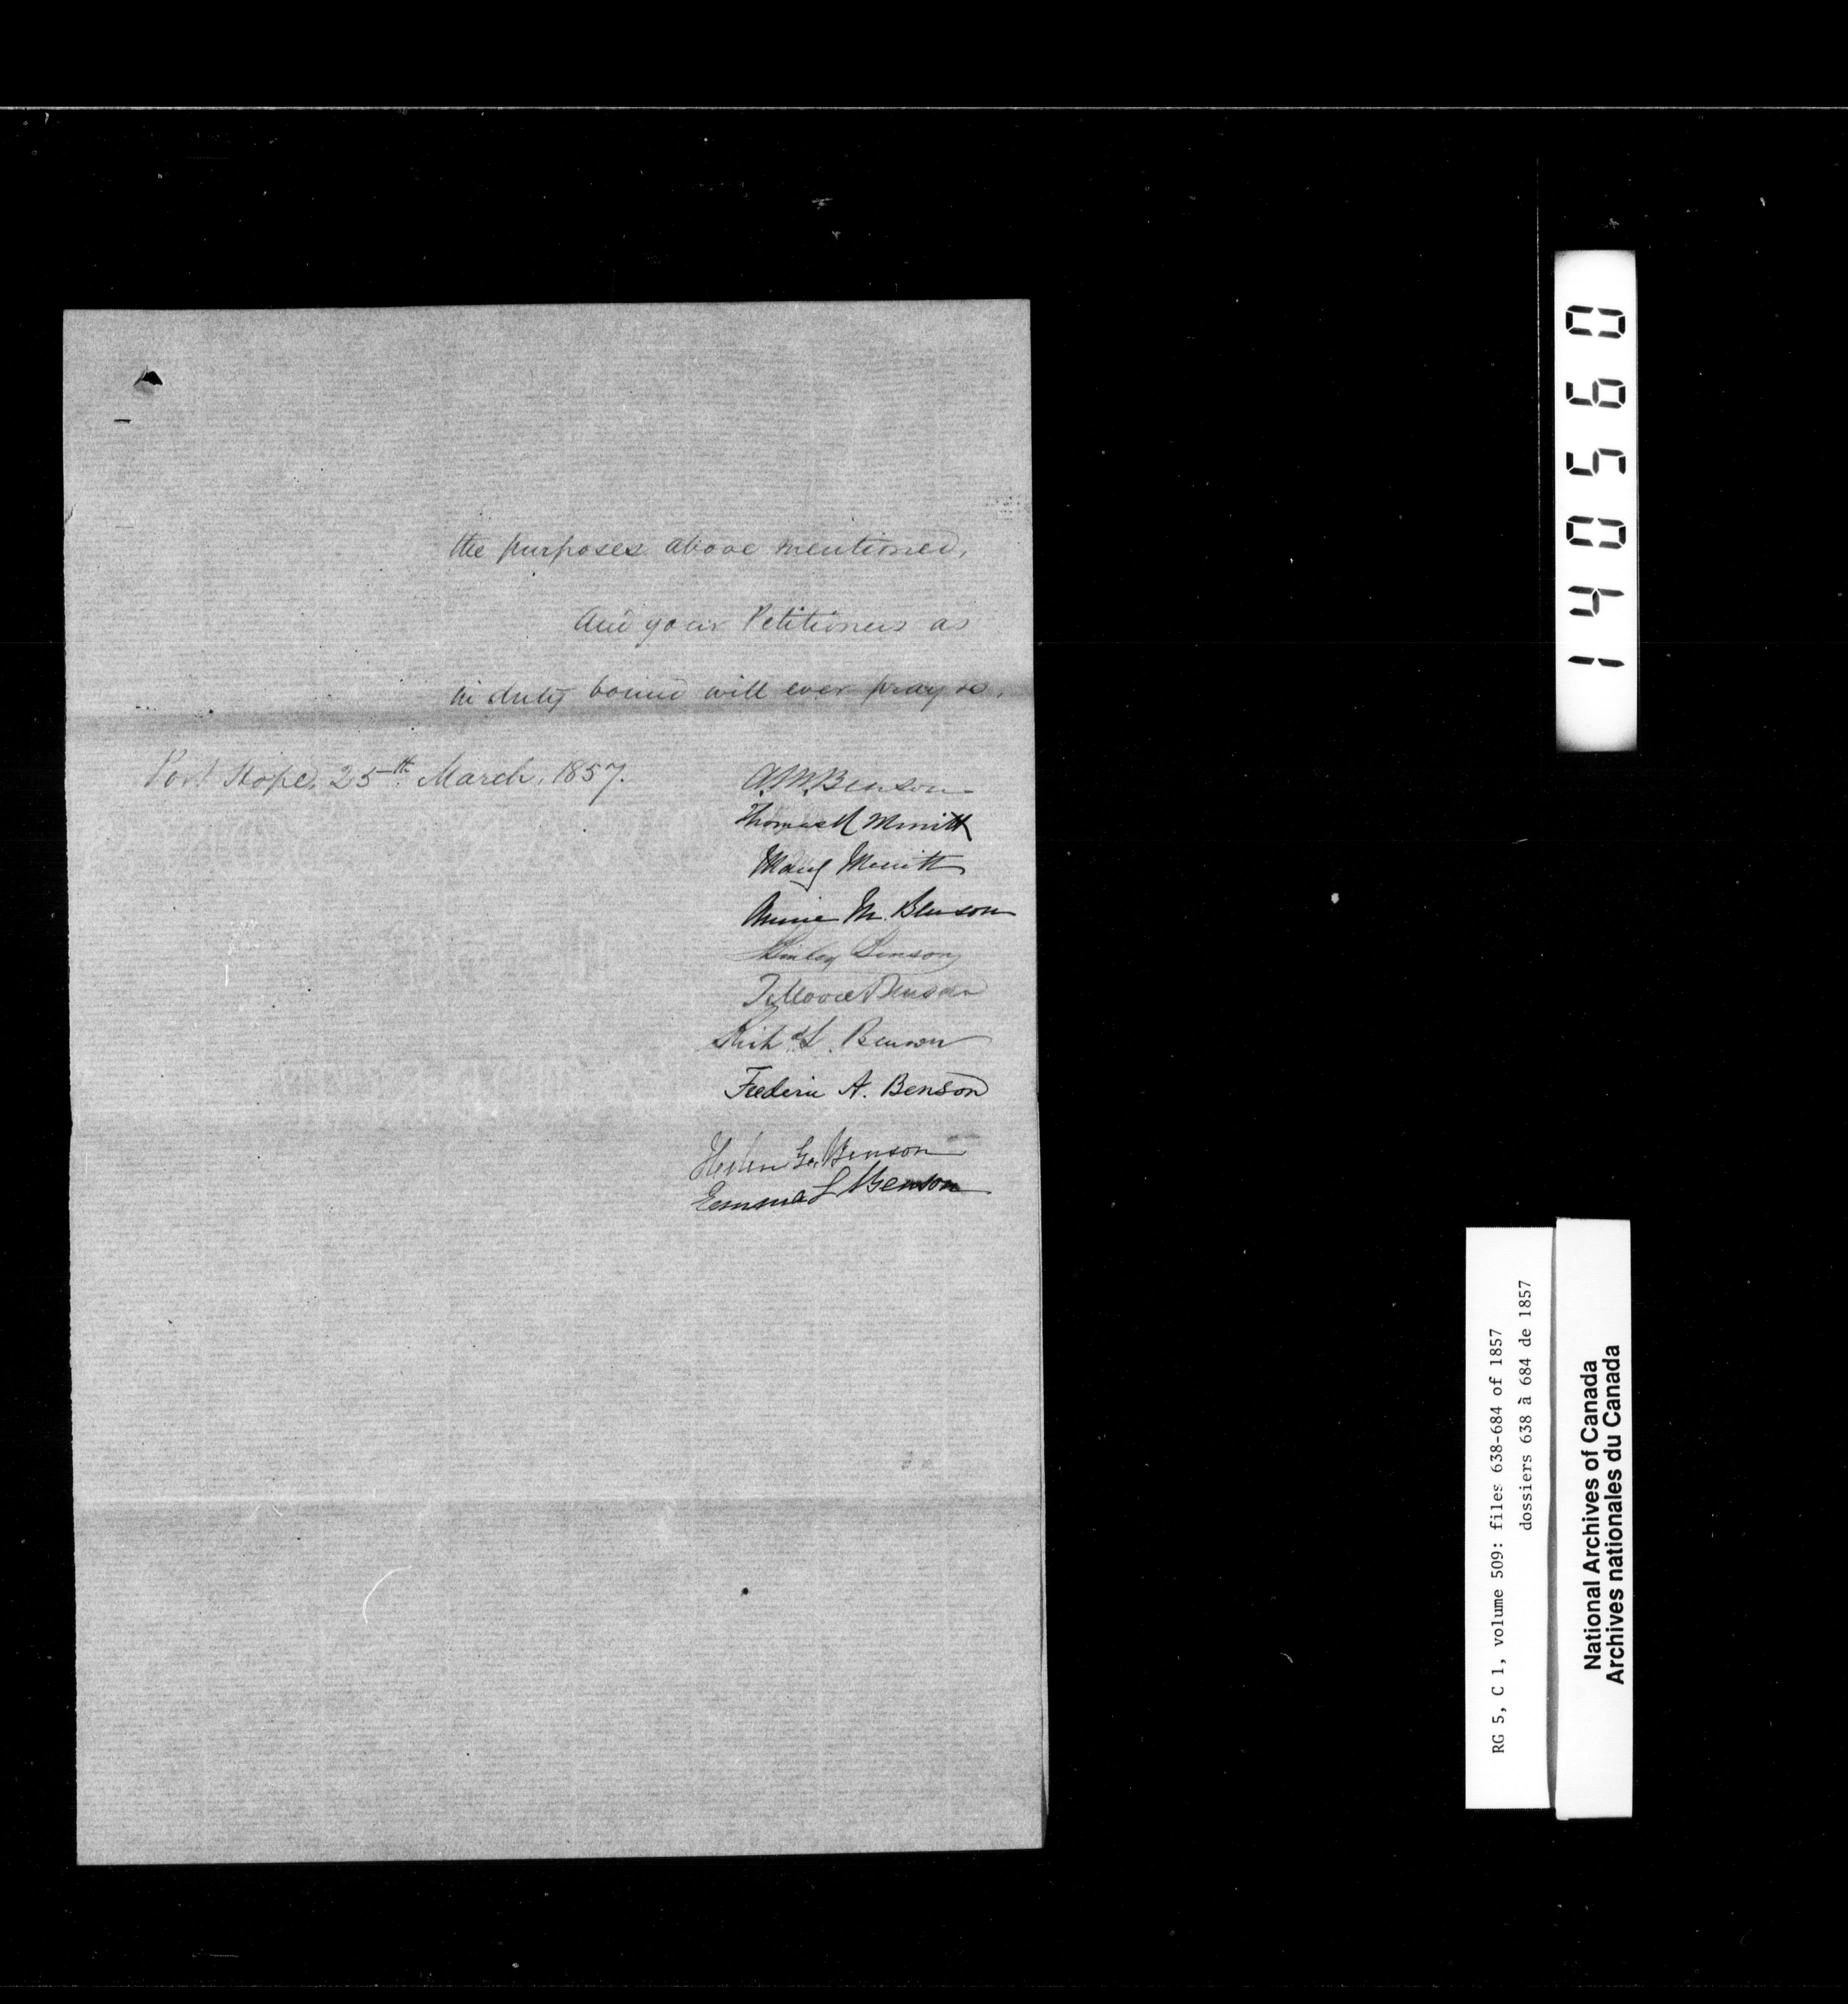 the purposes above mentioned,
And your Petitioners as
in duty bound will ever pray &c.
Port Hope, 25th March, 1857.
A. M. Benson
Thomas R Merritt
Mary Merritt
Annie M. Benson
Benson
T. Moore Benson
Richd L. Benson
Frederic A. Benson
Helen G. Benson
Emma L Benson
140560
RG 5, C 1, volume 509: files 638-684 of 1857
dossiers 638 à 684 de 1857
National Archives of Canada
Archives nationales du Canada